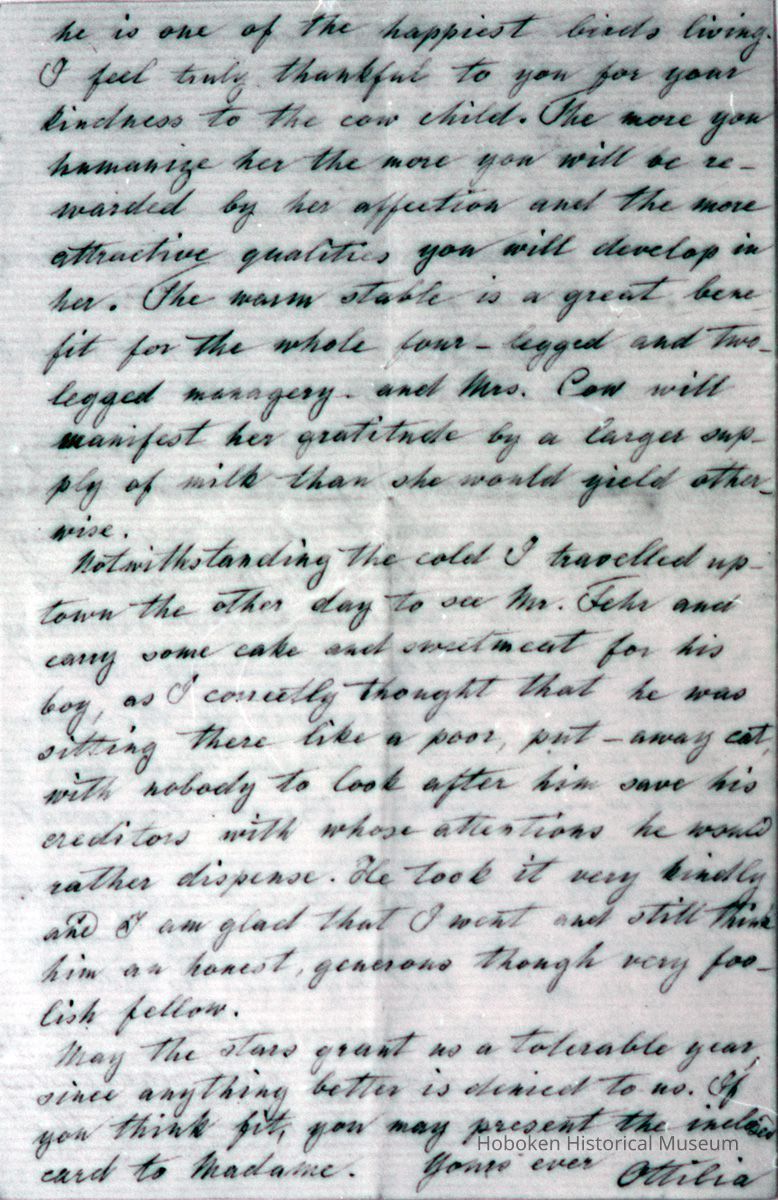 he is one of the happiest birds living.
I feel truly thankful to you for your
kindness to the cow child. The more you
humanize her the more you will be re-
warded by her affection and the more
attractive qualities you will develop in
her. The warm stable is a great bene-
fit for the whole four-legged and two-
legged managery. and Mrs. Cow will
manifest her gratitude by a larger sup-
ply of milk than she would yield other-
wise.
Notwithstanding the cold I travelled up-
town the other day to see Mr. Fehr and
carry some cake and sweetmeat for his
boy, as I correctly thought that he was
sitting there like a poor, put-away cat,
with nobody to look after him save his
creditors with whose attentions he would
rather dispense. He took it very kindly
and I am glad that I went and still think
him an honest, generous though very foo-
lish fellow.
May the stars grant us a tolerable year,
since anything better is denied to us. If
you think fit, you may present the inclosed
card to Madame. Yours ever Ottilia
Hoboken Historical Museum